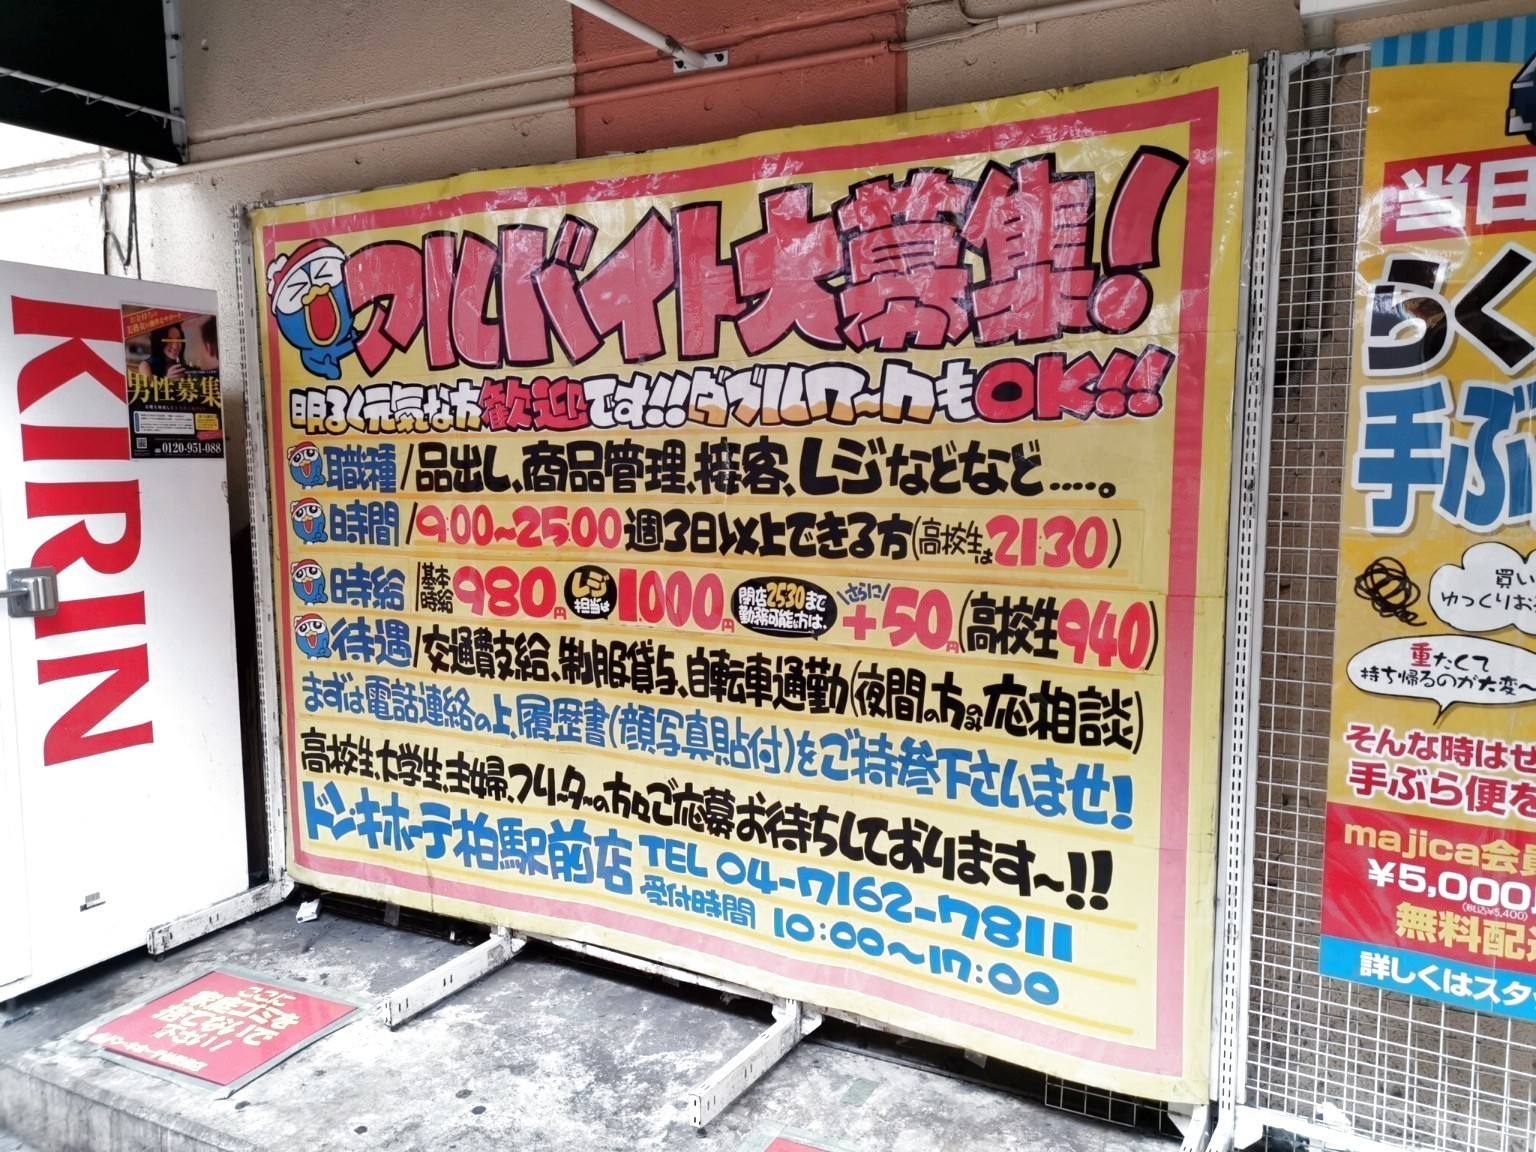 アルバイト大募集!
明るく元気な方歓迎です!!ダブルワークもOK!!
職種/品出し、商品管理、接客、レジなどなど.....。
時間/9:00~25:00週3日以上できる方(高校生は21:30)
時給/基本時給980円 レジ担当は1,000円 閉店25:30まで勤務可能な方は、さらに+50円(高校生940)
待遇/交通費支給、制服貸与、自転車通勤(夜間の方のみ応相談)
まずは電話連絡の上、履歴書(顔写真貼付)をご持参下さいませ!
高校生、大学生、主婦、フリーターの方々ご応募お待ちしております~!!
ドン・キホーテ柏駅前店 TEL 04-7162-7811
受付時間 10:00~17:00
KIRIN
男性募集
0120-951-088
当日
らく
手ぶ
買い
ゆっくりお
重たくて
持ち帰るのが大変~
そんな時はせ
手ぶら便を
majica会員
¥5,000
(税込¥5,400)
無料配送
詳しくはスタ